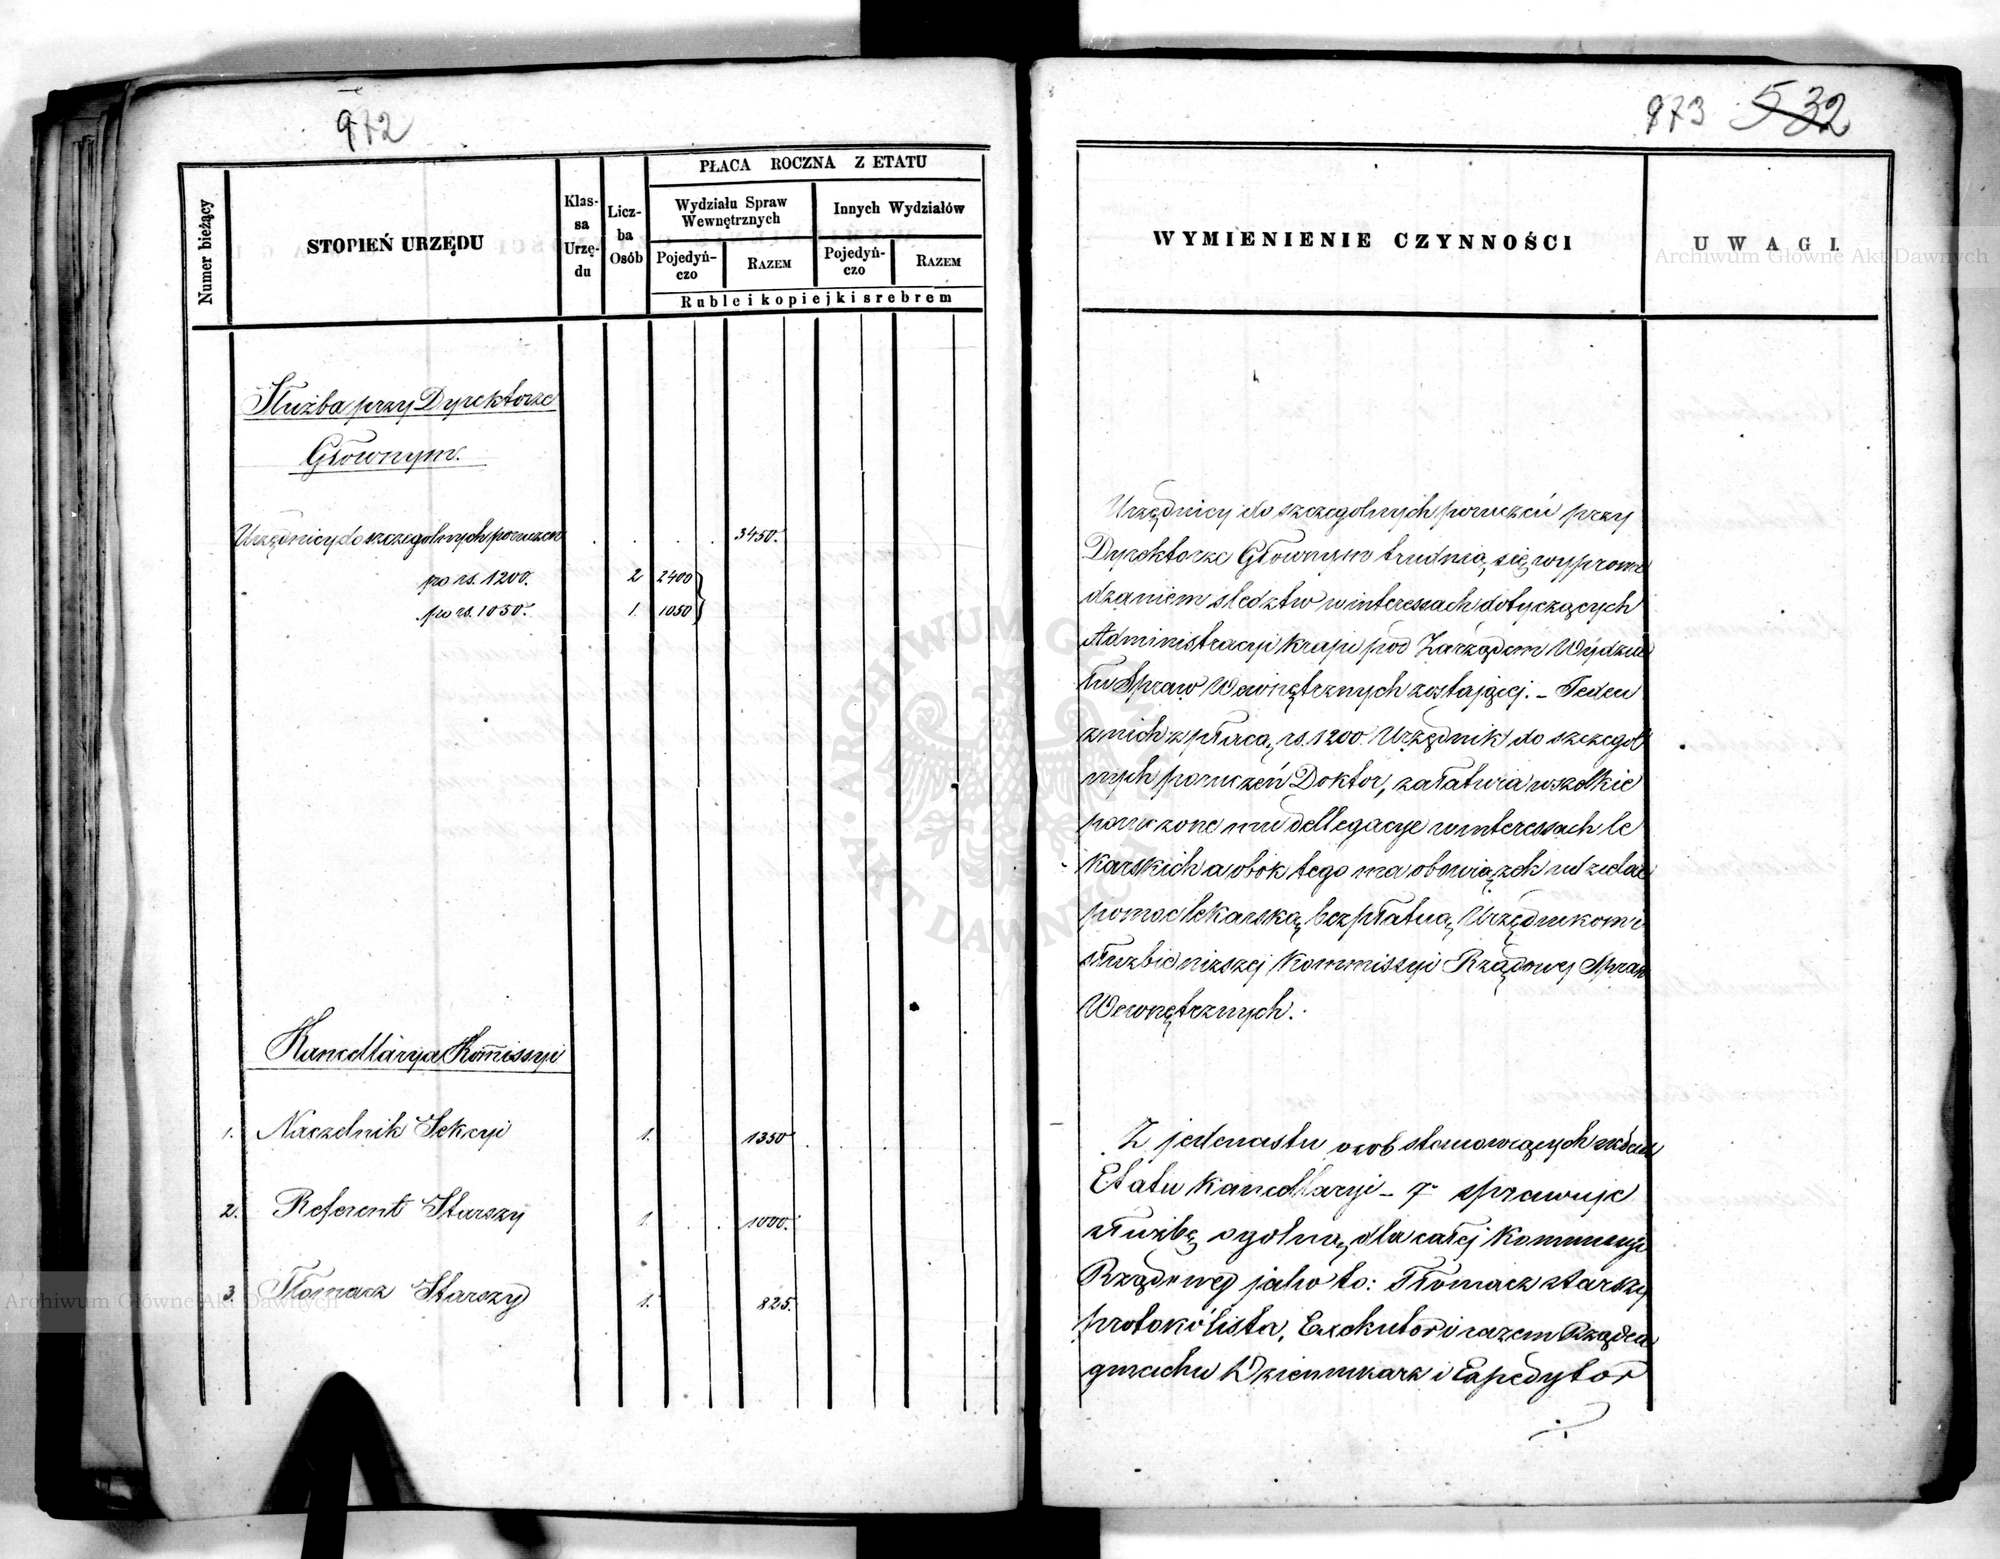 972
Numer bieżący
STOPIEŃ URZĘDU
Klas-
sa
Urzę-
du
Licz-
ba
Osób
PŁACA ROCZNA Z ETATU
Wydziału Spraw
Wewnętrznych
Innych Wydziałów
Pojedyń-
czo
RAZEM
Pojedyń-
czo
RAZEM
Ruble i kopiejki srebrem
Służba przy Dyrektorze
Głównym.
Urzędnicy do szczegolnych poruczen . . . . 3450.
po rs. 1200. 2 2400
po rs. 1050. 1. 1050
Kancellarya Kom̄issyi
1. Naczelnik Sekcyi 1. 1350
2. Referent Starszy 1. 1000.
3. Tłomacz Starszy 1. 825.
973 532
WYMIENIENIE CZYNNOŚCI
UWAGI.
Urzędnicy do szczegolnych poruczeń przy
Dyrektorze Głównym trudnią się wyprowa
dzaniem śledztw w interessach dotyczących
Administracyi kraju pod Zarządem Wydzia
łu Spraw Wewnętrznych zostającej. – Jeden
z nich z płacą rs. 1200. Urzędnik do szczegól
nych poruczeń Doktor, załatwia wszelkie
poruczone mu dellegacye w interessach le
karskich a obok tego ma obowiązek udzielać
pomoc lekarską bezpłatną Urzędnikom i
służbie niższej Kommissyi Rządowej Spraw
Wewnętrznych.
Z jedenastu osob stanowiących skład
Etatu Kancellaryi – 7 sprawuje
służbę ogólną dla całej Kommissyi
Rządowej jako to: Tłomacz starszy
protokólista, Exekutor i razem Rządca
gmachu Dziennikarz i Expedytor
Archiwum Główne Akt Dawnych
Archiwum Główne Akt Dawnych
ARCHIWUM GŁÓWNE AKT DAWNYCH